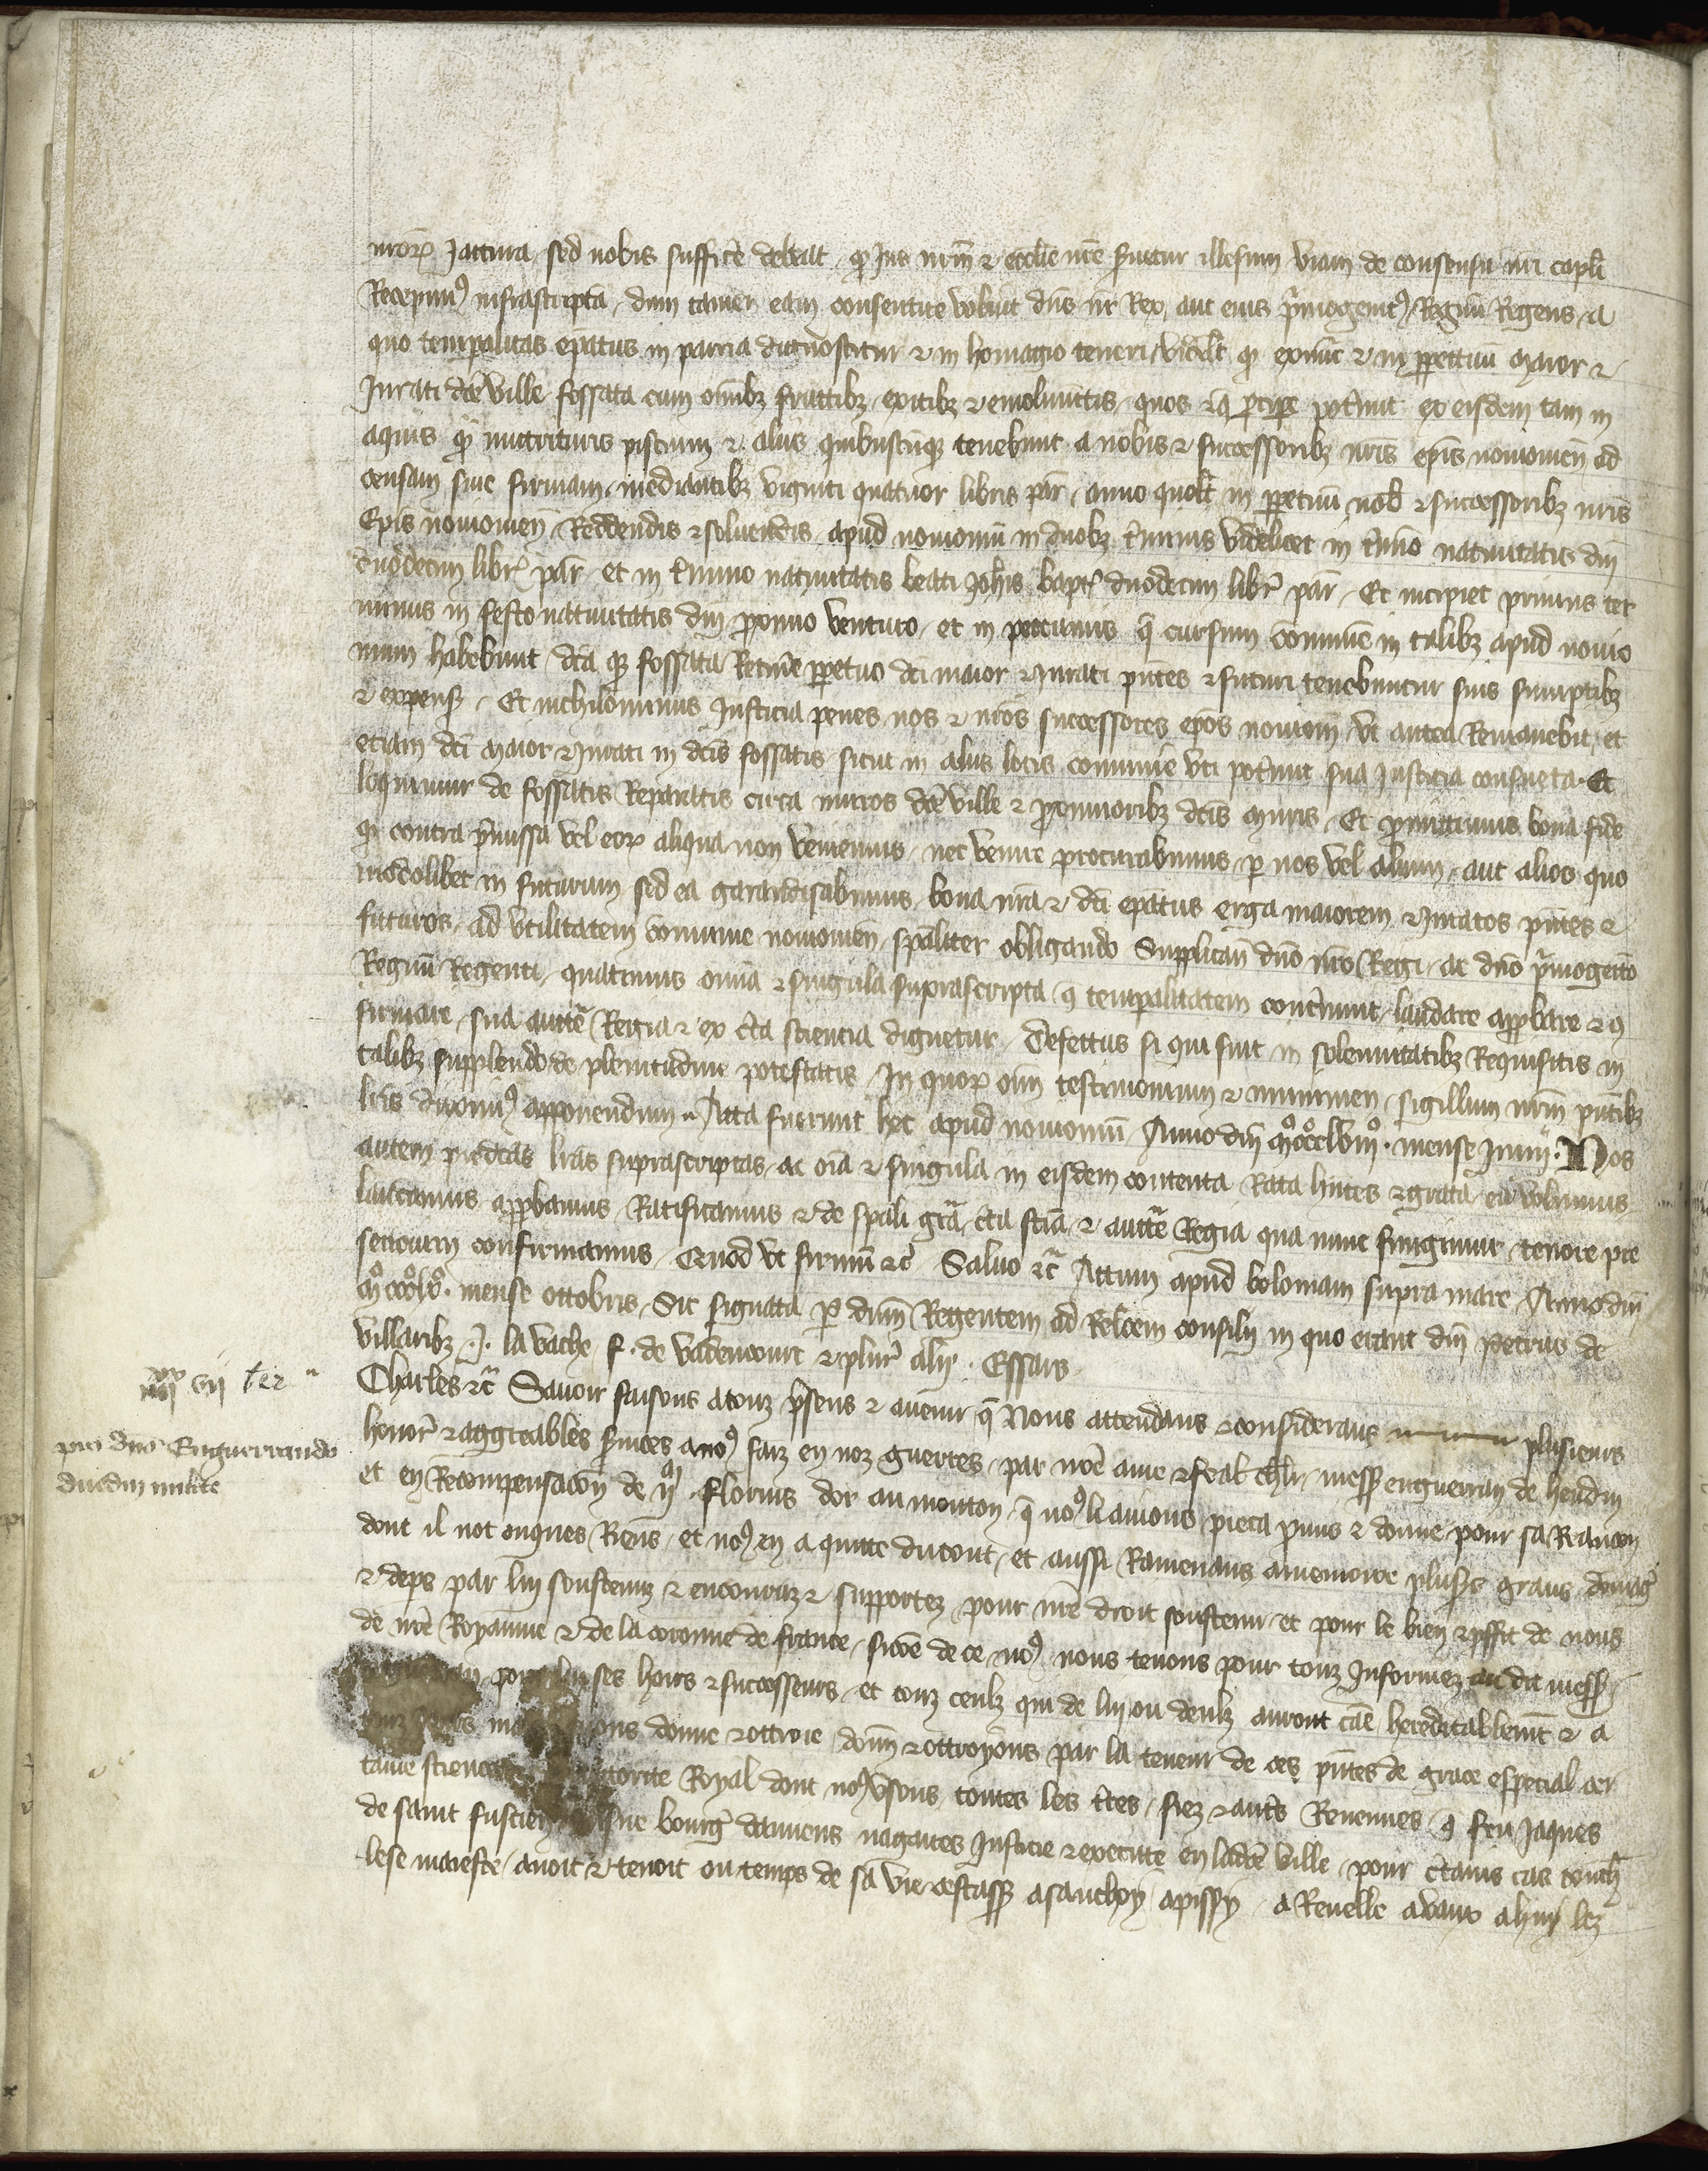 nrorum jactura sed nobis sufficere debeat quod jus nrm et ecclie nre servetur illesum viam de consensu nri capli
Recepimus infrascripta dum tamen eam consentire voluit dns nr Rex aut eius primogenitus Regnum Regens a
quo temporalitas epatus in parria dignoscitur et in homagio teneri videlt quod exnunc et in perpetuum maior et
Jurati dce ville fossata cum omibz fructibz exitibz et emolumentis quos et que percipe poterunt ex eisdem tam in
aquis quam nutrituris piscium et aliis quibuscunque tenebunt a nobis et successoribz nris epis noviomen ad
censam sive firmam mediantibz viginti quatuor libris par anno quolt in perpetuum nob et successoribz nris
Epis noviomen Reddendis et solvendis apud noviomum in duobz terminis videlicet in termino nativitatis dni
duodecim libr par et in termino nativitatis beati Johis bapte duodecim libr par Et incipiet primus ter
minus in festo nativitatis dni proximo venturo et in peccuniis que cursum commune in talibz apud novio
mum habebunt dcaque fossata Retinere perpetuo dci maior et Jurati pntes et futuri tenebuntur suis sumptibz
et expensis Et nichilominus Justicia penes nos et nros successores epos noviom ut antea Remanebit et
etiam dci maior et Jurati in dcis fossatis sicut in aliis locis commune uti poterunt sua Justicia consueta Et
loquimur de fossatis Reparatis circa muros dce ville et proximioribz dcis muris Et promittimus bona fide
quod contra premissa vel eorum aliqua non veniemus nec venire procurabimus per nos vel alium aut alios quo
modolibet in futurum sed ea garandisabimus bona nra et dci epatus erga maiorem et Juratos pntes et
futuros ad utilitatem commune noviomen spaliter obligando Supplican dno nro Regi ac dno primogenito
Regnum Regenti quatinus omia et singula suprascripta que temporalitatem concernunt laudare approbare et con
firmare sua auctte Regia et ex certa sciencia dignetur Defectus si qui sint in solennitatibz Requisitis in
talibz supplendo de plenitudine potestatis In quorum omn testimonium et munimen sigillum nrm pntibz
lris duximus apponendum Acta fuerunt hec apud noviomum Anno dni mo ccco lviiio mense Junii Nos
autem predcas lras suprascriptas ac oia et singula in eisdem contenta Rata hntes et grata ea volumus
laudamus approbamus Ratificamus et de spali gra certa scia et auctte Regia qua nunc fungimur tenore pre
sencium confirmamus Quod ut firmum etc Salvo etc Actum apud boloniam supra mare Anno dni
mo ccco lxo mense octobris Sic signata per dnm Regentem ad Relcoem consilii in quo erant dni Petrus de
villaribz J. la vache f. de vadencourt et plur alii Essars
iiiixx vii ter
pro dno Enguerrando
duedin milite
Charles etc Savoir faisons a touz presens et avenir que Nous attendans et considerans plusieurs
honor et aggreables services a nous faiz en noz guerres par nre ame et feal chlr messr enguerran de heudin
et en Recompensacion de iim florins dor au mouton que nous li avions pieca promis et donne pour sa Rancon
dont il not onques Riens et nous en a quitte du tout et aussi Ramenans a memoire plusrs grans domagr
et deps par lui soustenuz et encouruz et supportez pour nre droit soustenir et pour le bien et prffit de nous
de nre Royaume et de la coronne de france sicome de ce nous nous tenons pour touz Informez au dit messr
pour lui ses hoirs et successeurs et touz ceulz qui de lui ou deulz auront cause hereditablemt et a
touz jours donne et ottroie donn et ottroyons par la teneur de ces pntes de grace especial cer
taine science Royal dont nous usons toutes les terres fiez et autres Revenues que feu Jaques
de saint fuscien bourgr damiens nagaires Justicie et execute en ladce ville pour certains cas touchr
lese maieste avoit et tenoit ou temps de sa vie cestassr a sauchoy a pissy a Revelle a vaux a huy lez